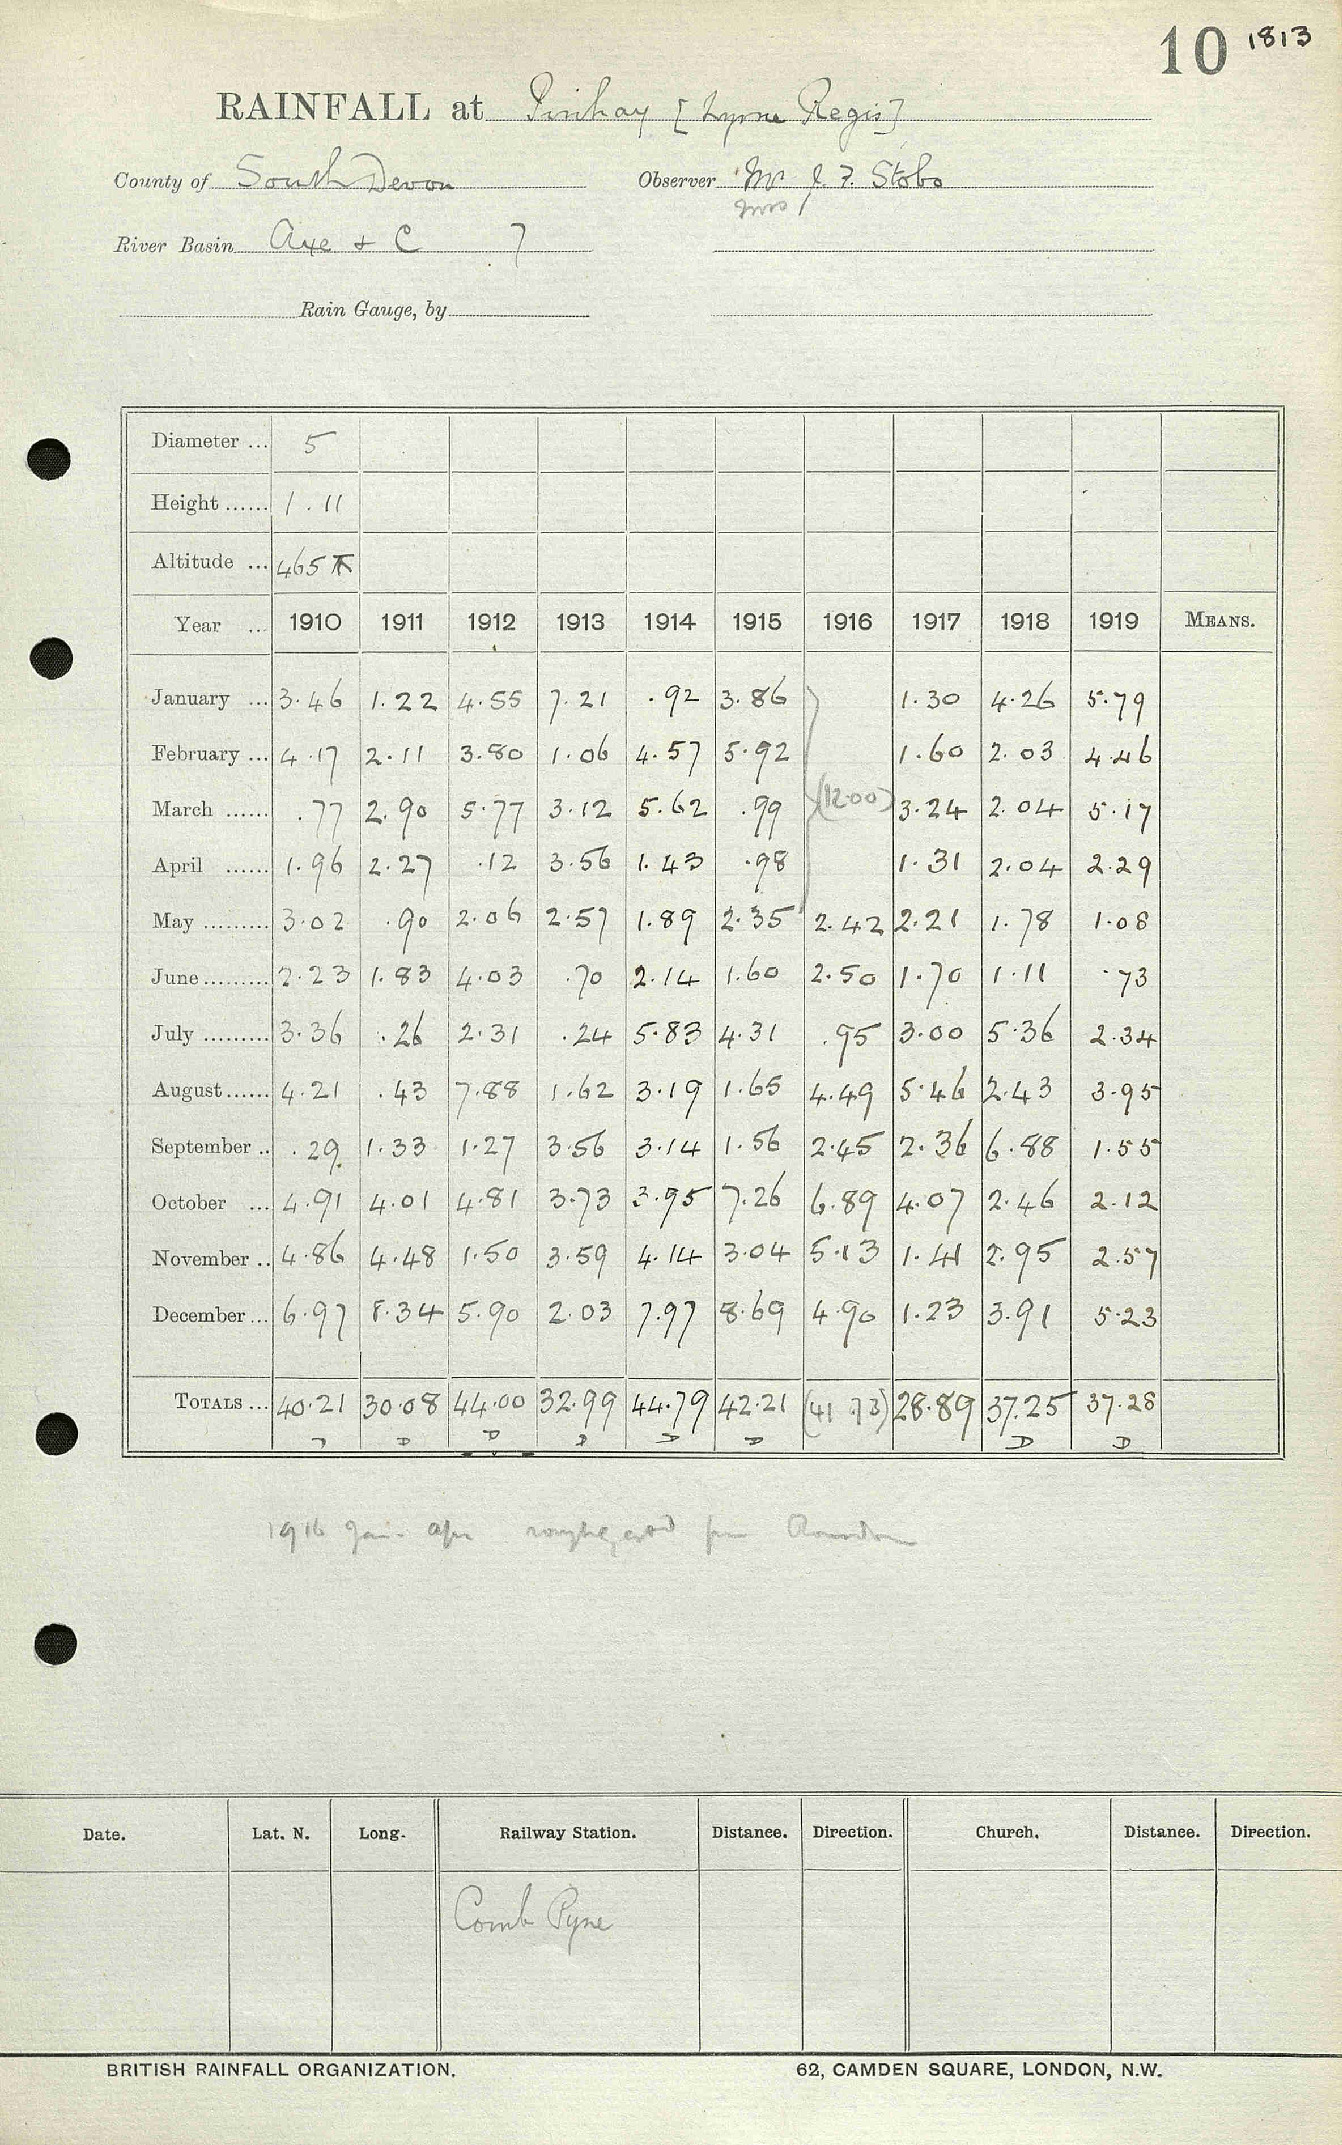 10 1813
RAINFALL at Pinhay [Lyme Regis]
County of South Devon Observer Mr J. F. Stobo
Mrs
River Basin Axe + C 7
Rain Gauge, by
Diameter ... 5
Height ...... 1 . 11
Altitude ... 465
Year ... 1910 1911 1912 1913 1914 1915 1916 1917 1918 1919 MEANS.
January ... 3.46 1.22 4.55 7.21 .92 3.86 1.30 4.26 5.79
February ... 4.17 2.11 3.80 1.06 4.57 5.92 1.60 2.03 4.46
March ...... .77 2.90 5.77 3.12 5.62 .99 (12.00) 3.24 2.04 5.17
April ...... 1.96 2.27 .12 3.56 1.43 .98 1.31 2.04 2.29
May ......... 3.02 .90 2.06 2.57 1.89 2.35 2.42 2.21 1.78 1.08
June ......... 2.23 1.83 4.03 .70 2.14 1.60 2.50 1.70 1.11 .73
July ......... 3.36 .26 2.31 .24 5.83 4.31 .95 3.00 5.36 2.34
August ...... 4.21 .43 7.88 1.62 3.19 1.65 4.49 5.46 2.43 3.95
September .. .29 1.33 1.27 3.56 3.14 1.56 2.45 2.36 6.88 1.55
October ... 4.91 4.01 4.81 3.73 3.95 7.26 6.89 4.07 2.46 2.12
November .. 4.86 4.48 1.50 3.59 4.14 3.04 5.13 1.41 2.95 2.57
December ... 6.97 8.34 5.90 2.03 7.97 8.69 4.90 1.23 3.91 5.23
TOTALS ... 40.21 30.08 44.00 32.99 44.79 42.21 (41.73) 28.89 37.25 37.28
D D D D D D D D
1916 Jan - Apr roughly estd from Rousdon
Date. Lat. N. Long. Railway Station. Distance. Direction. Church. Distance. Direction.
Comb Pyne
BRITISH RAINFALL ORGANIZATION. 62, CAMDEN SQUARE, LONDON, N.W.